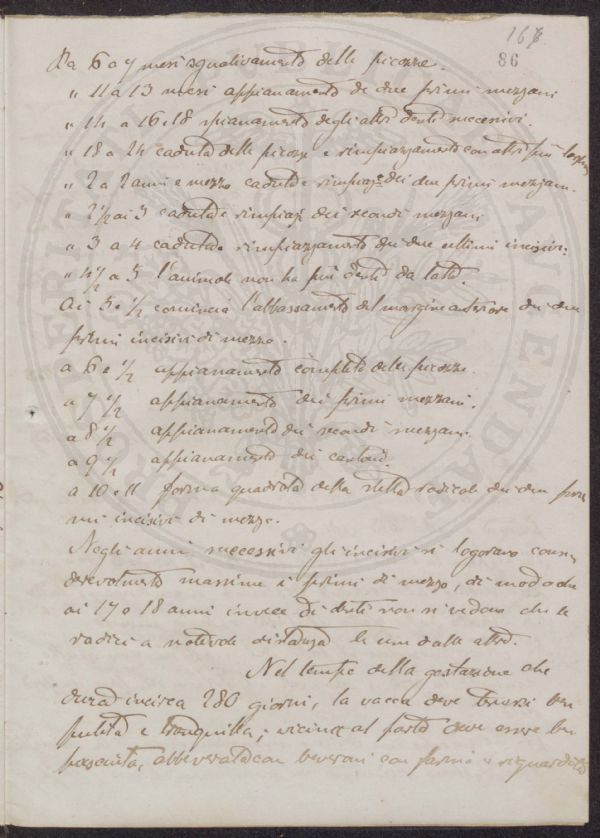 167
86
Da 6 a 9 mesi sgualivamento delle picozze.
" 11 a 13 mesi appianamento di due primi mezzani
" 14 a 16 e 18 spianamento degli altri denti successivi.
" 18 a 24 caduta delle picozze e rimpiazzamento con altri più
" 2 a 2 anni e mezzo caduta e rimpiaz. dei due primi mezzani.
" 2 1/2 ai 3 caduta e rimpiaz. dei secondi mezzani
" 3 a 4 caduta e rimpiazzamento dei due ultimi incisivi.
" 4 1/2 a 5 l'animale non ha più denti da latte.
Ai 5 e 1/2 comincia l'abbassamento del margine anteriore dei due
primi incisivi di mezzo.
a 6 e 1/2 appianamento completo delle picozze.
a 7 1/2 appianamento dei primi mezzani.
a 8 1/2 appianamento dei secondi mezzani.
a 9 1/2 appianamento dei cantoni.
a 10 e 11 forma quadrata della stella radicale dei due pri
mi incisivi di mezzo.
Negli anni successivi gli incisivi si logorano consi
derevolmente massime i primi di mezzo, di modo che
ai 17 o 18 anni invece di denti non si vedono che le
radici a notevole distanza le une dalle altre.
Nel tempo della gestazione che
dura incirca 280 giorni, la vacca deve tenersi ben
pulita e tranquilla; vicina al parto deve essere ben
pasciuta, abbeverata con beveroni con farina e
PROSPERITATI PUBLICAE AUGENDAE